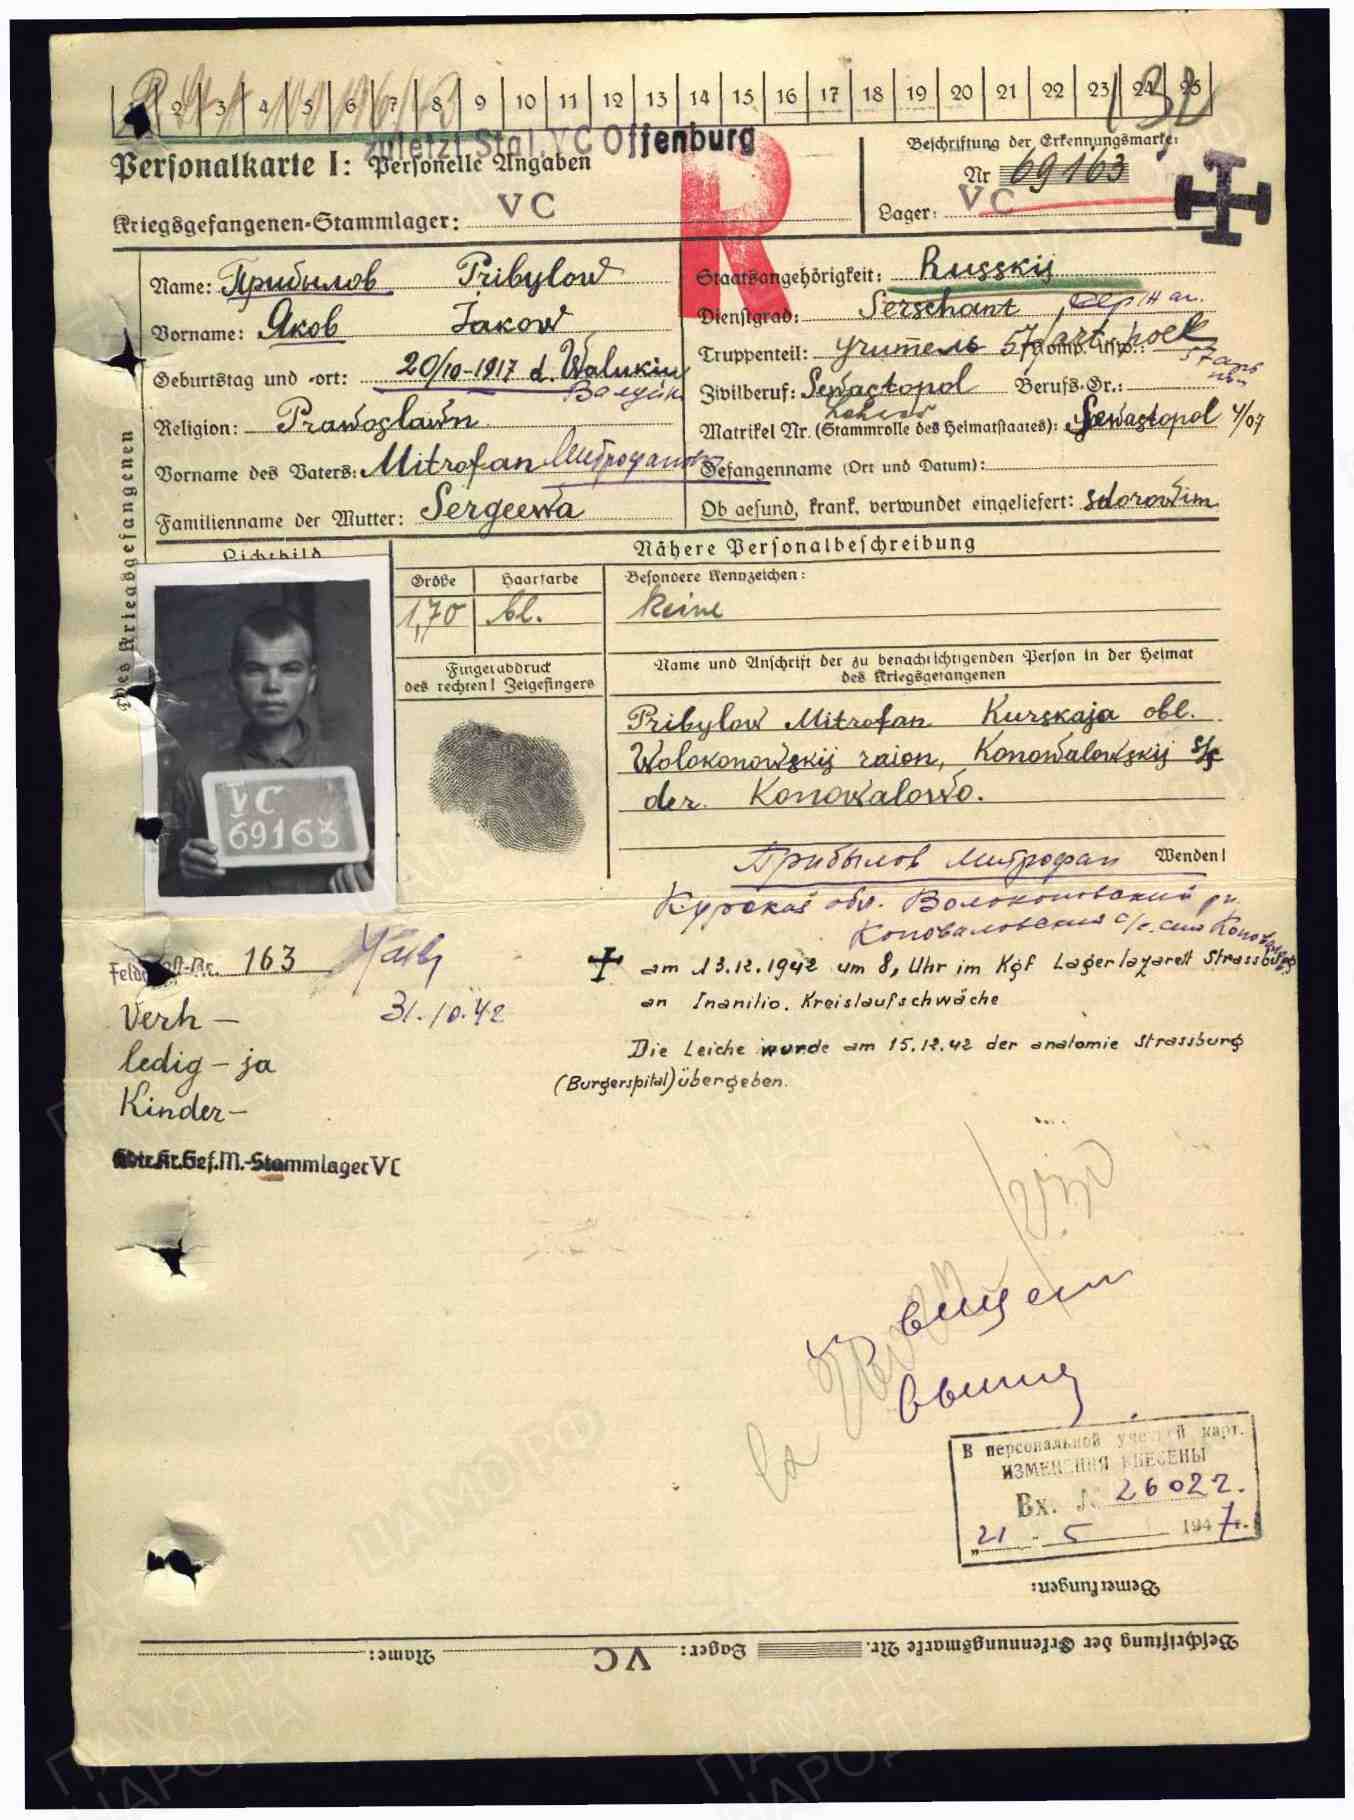 2 3 4 5 6 7 8 9 10 11 12 13 14 15 16 17 18 19 20 21 22 23 24 25
zuletzt Stal. VC Offenburg
Personalkarte I: Personelle Angaben
Kriegsgefangenen-Stammlager: VC
R
Beschriftung der Erkennungsmarke:
Nr 69163
Lager: VC
Name: Прибылов Pribylow
Vorname: Яков Jakow
Geburtstag und -ort: 20/10-1917 d. Walukin
Religion: Prawoslawn
Vorname des Vaters: Mitrofan
Familienname der Mutter: Sergeewa
Staatsangehörigkeit: Russkij
Dienstgrad: Serschant
Truppenteil: учитель 57 art. polk
Zivilberuf: Sewastopol Berufs-Gr.:
Matrikel Nr. (Stammrolle des Heimatstaates): Sewastopol 4/07
Gefangennahme (Ort und Datum):
Ob gesund, krank, verwundet eingeliefert: sdorowim
des Kriegsgefangenen
Lichtbild
VC
69163
Nähere Personalbeschreibung
Größe Haarfarbe Besondere Kennzeichen:
1,70 bl. keine
Fingerabdruck
des rechten! Zeigefingers
Name und Anschrift der zu benachrichtigenden Person in der Heimat
des Kriegsgefangenen
Pribylow Mitrofan Kurskaja obl.
Wolokonowskij raion, Konowalowskij s/s
der. Konowalowo.
Wenden!
Прибылов Митрофан
Курская обл. Волоконовский рн.
Коноваловский с/с. село
163
31.10.42
Verh –
ledig – ja
Kinder –
am 13.12.1942 um 8, Uhr im Kgf Lagerlazarett Strassburg
an Inanilio. Kreislaufschwäche
Die Leiche wurde am 15.12.42 der anatomie Strassburg
(Burgerspital) übergeben.
Kr.Gef.M.-Stammlager VC
В персональной учетной карт.
ИЗМЕНЕНИЯ ВНЕСЕНЫ
Вх. № 26022.
„21 - 5 1947г.
Bemerkungen:
Beschriftung der Erkennungsmarke Nr. Lager: VC Name:
ПАМЯТЬ НАРОДА